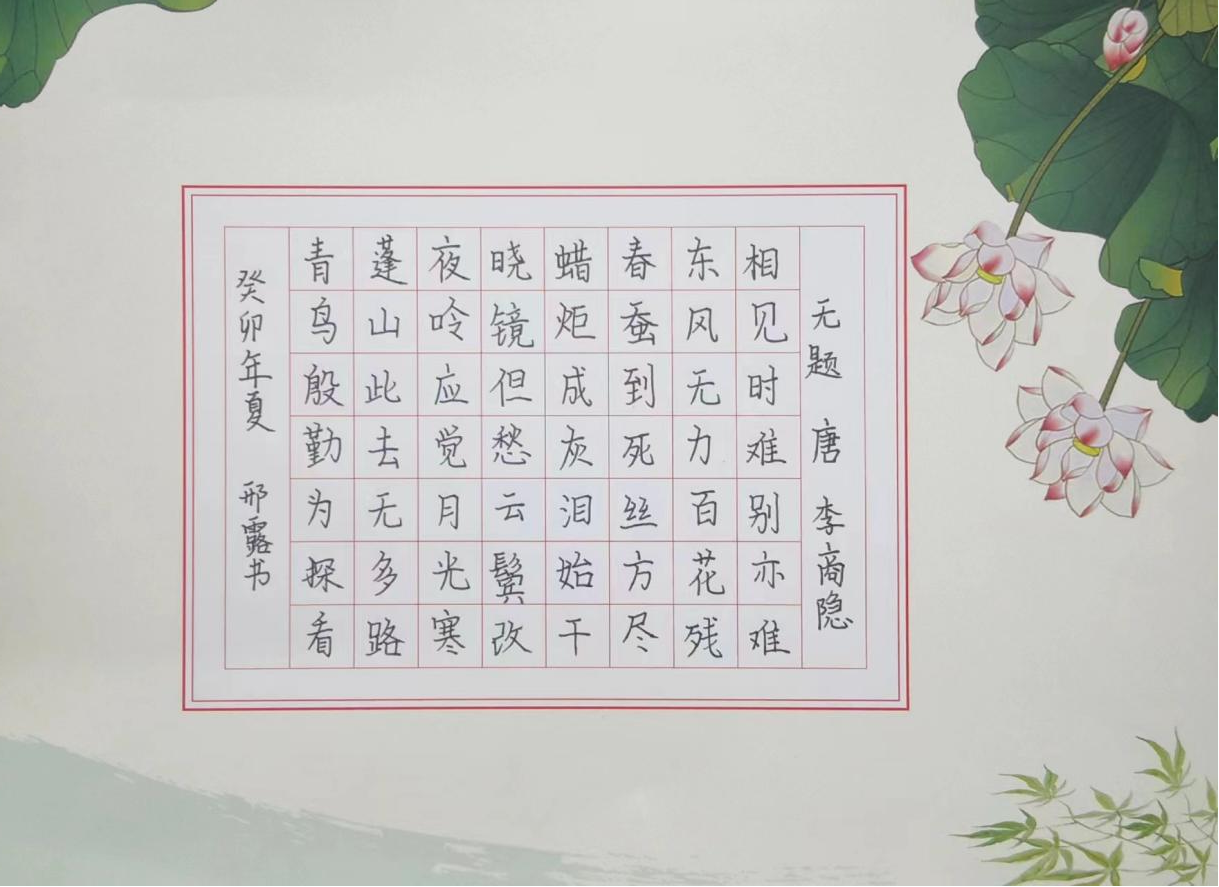 无题 唐 李商隐
相见时难别亦难
东风无力百花残
春蚕到死丝方尽
蜡炬成灰泪始干
晓镜但愁云鬓改
夜吟应觉月光寒
蓬山此去无多路
青鸟殷勤为探看
癸卯年夏 邢露书